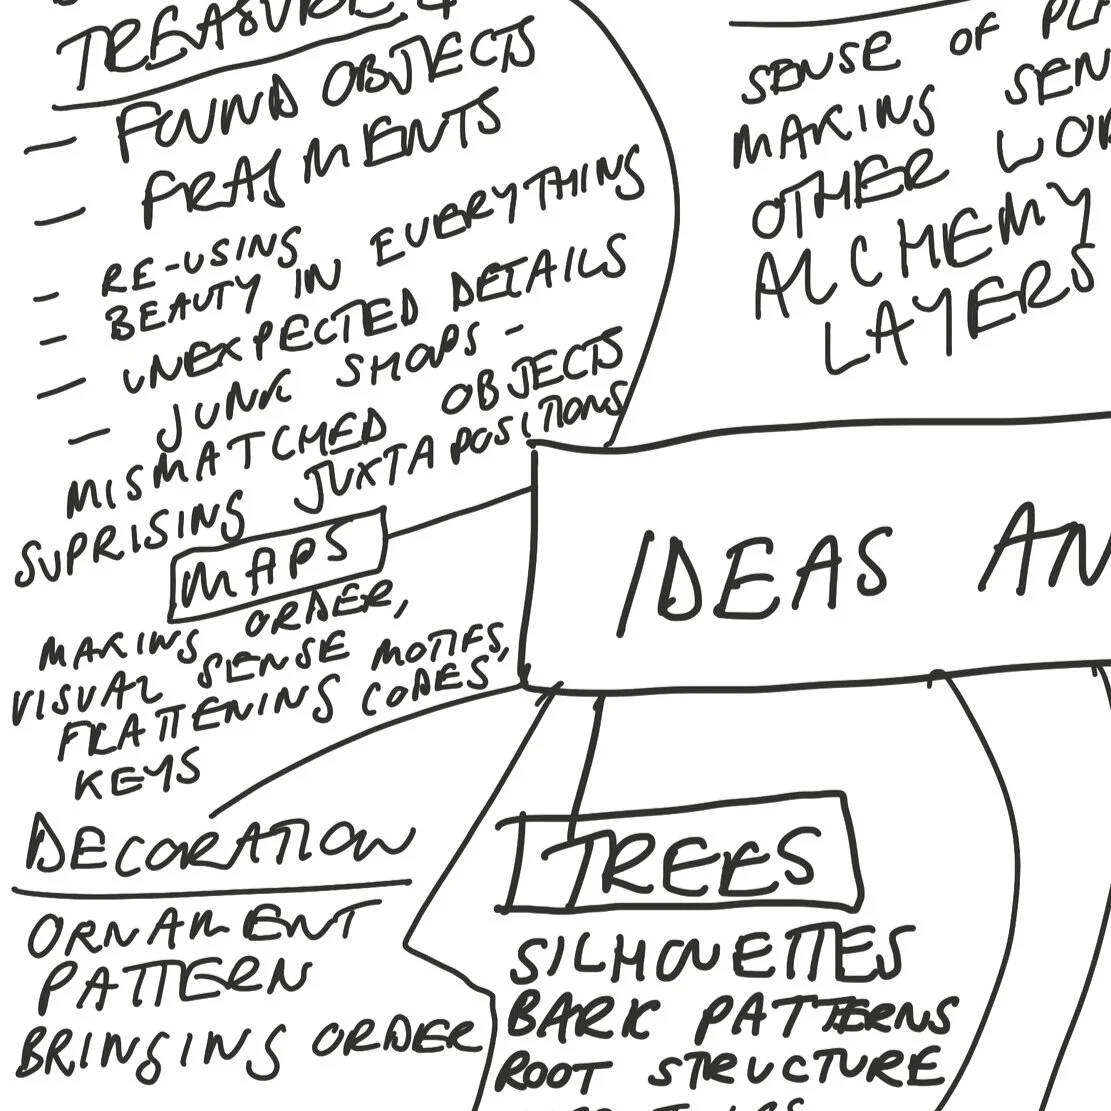 TREASURE
— FOUND OBJECTS
— FRAGMENTS
— RE-USING
— BEAUTY IN EVERYTHING
— UNEXPECTED DETAILS
— JUNK SHOPS -
MISMATCHED OBJECTS
SUPRISING JUXTAPOSITIONS
MAPS
MAKING ORDER,
VISUAL SENSE MOTIFS,
FLATTENING CODES
KEYS
DECORATION
ORNAMENT
PATTERN
BRINGING ORDER
SENSE OF
MAKING
OTHER
ALCHEMY
LAYERS
IDEAS
TREES
SILHOUETTES
BARK PATTERNS
ROOT STRUCTURE